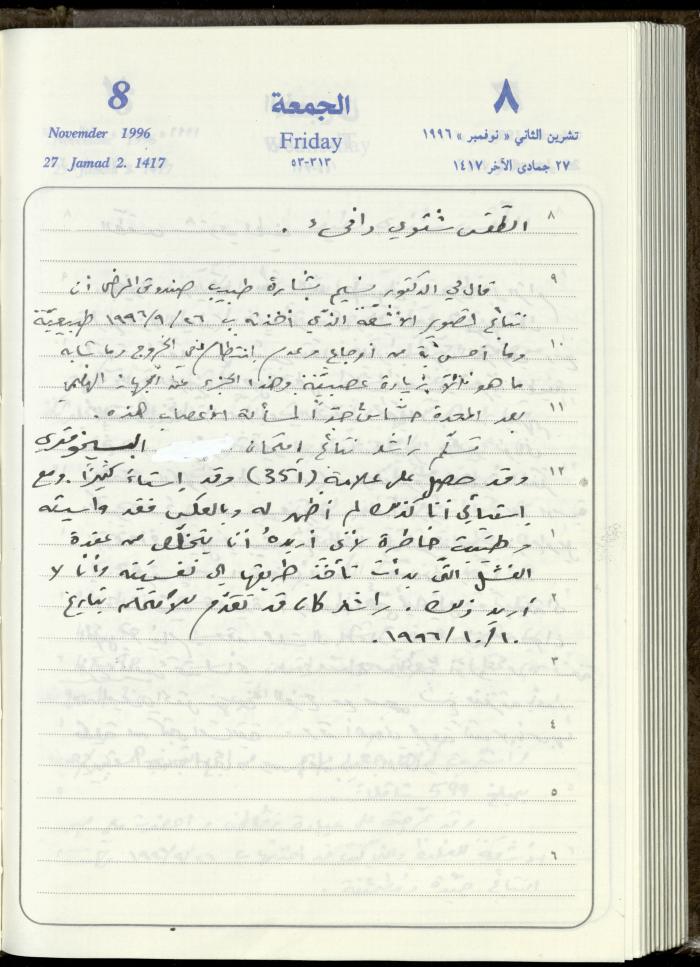 8
Novemder 1996
27 Jamad 2. 1417
الجمعة
Friday
٥٣-٣١٣
٨
تشرين الثاني « نوفمبر » ١٩٩٦
٢٧ جمادى الآخر ١٤١٧
٨ الطقس شتوي دافىء .
٩ قال لي الدكتور نسيم بشارة طبيب صندوق المرضى أن
نتائج تصوير الأشعّة الذي أخذته بـ ٢٦/٩/١٩٩٦ طبيعيّة
١٠ وما أحسّ به من أوجاع وعدم إنتظام في الخروج وما شابه
ما هو إلّا زيارة عصبيّة وهذا الجزء من الجهاز الهضمي
١١ بعد المعدة حسّاس جدّاً لمسألة الأعصاب هذه .
تسلّم راشد نتائج إمتحان البسيخومتري
١٢ وقد حصل على علامة (351) وقد إستاء كثيرًا . ومع
إستيائي أنا كذلك لم أظهر له وبالعكس فقد واسيته
١ وطيّبت خاطرة لأنني أريدهُ أن يتخلّص من عقدة
الفشل التي بدأت تأخذ طريقها إلى نفسيّته وأنا لا
٢ أريد ذلك . راشد كان قد تقدّم للأمتحان بتاريخ
١٠/١٠/١٩٩٦.
٣
٤
٥
٦